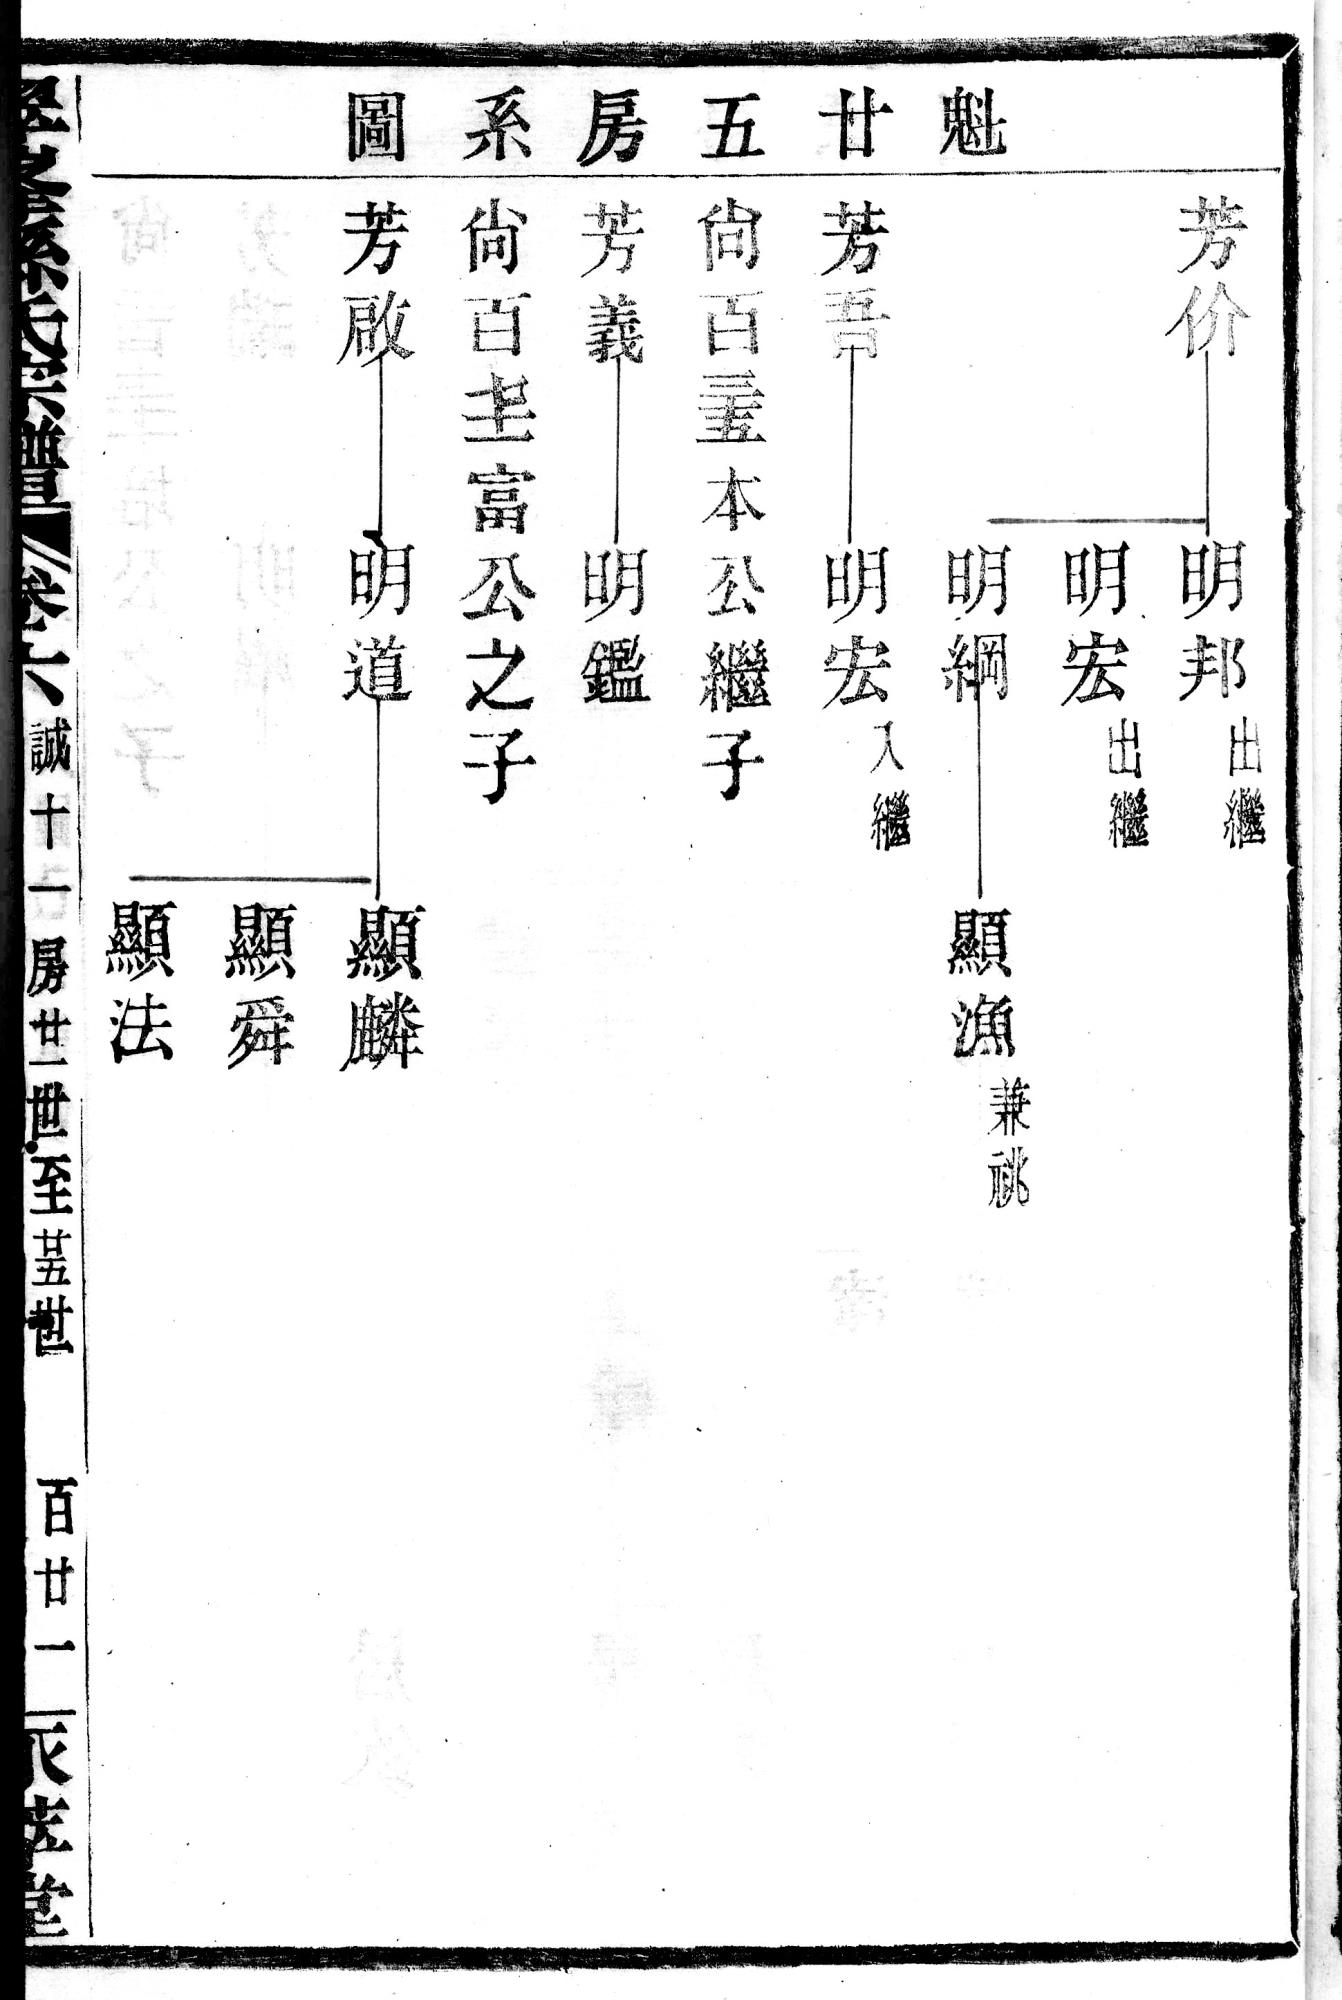 魁廿五房系圖
芳价
明邦出繼
明宏出繼
明綱
顯漁兼祧
芳吾
明宏入繼
尙百本公繼子
芳義
明鑑
尙百富公之子
芳啟
明道
顯麟
顯舜
顯法
孫氏宗譜
卷六
誠十一房廿一世至廿五世
百廿一
堂